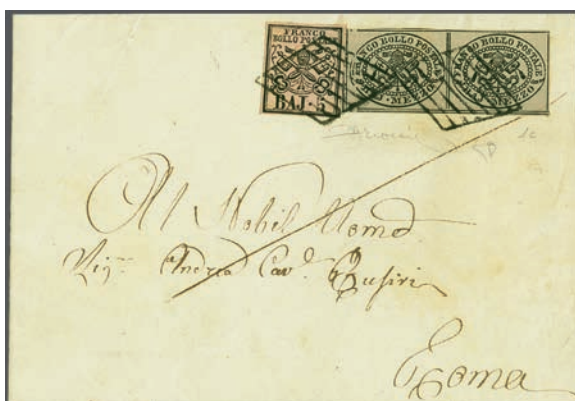 FRANCO
BOLLO POSTALE
BAJ. 5
FRANCO BOLLO POSTALE
MEZZO
FRANCO BOLLO POSTALE
MEZZO
Al Nobil Uomo
Sig.r Andrea Cav.e Busiri
Roma